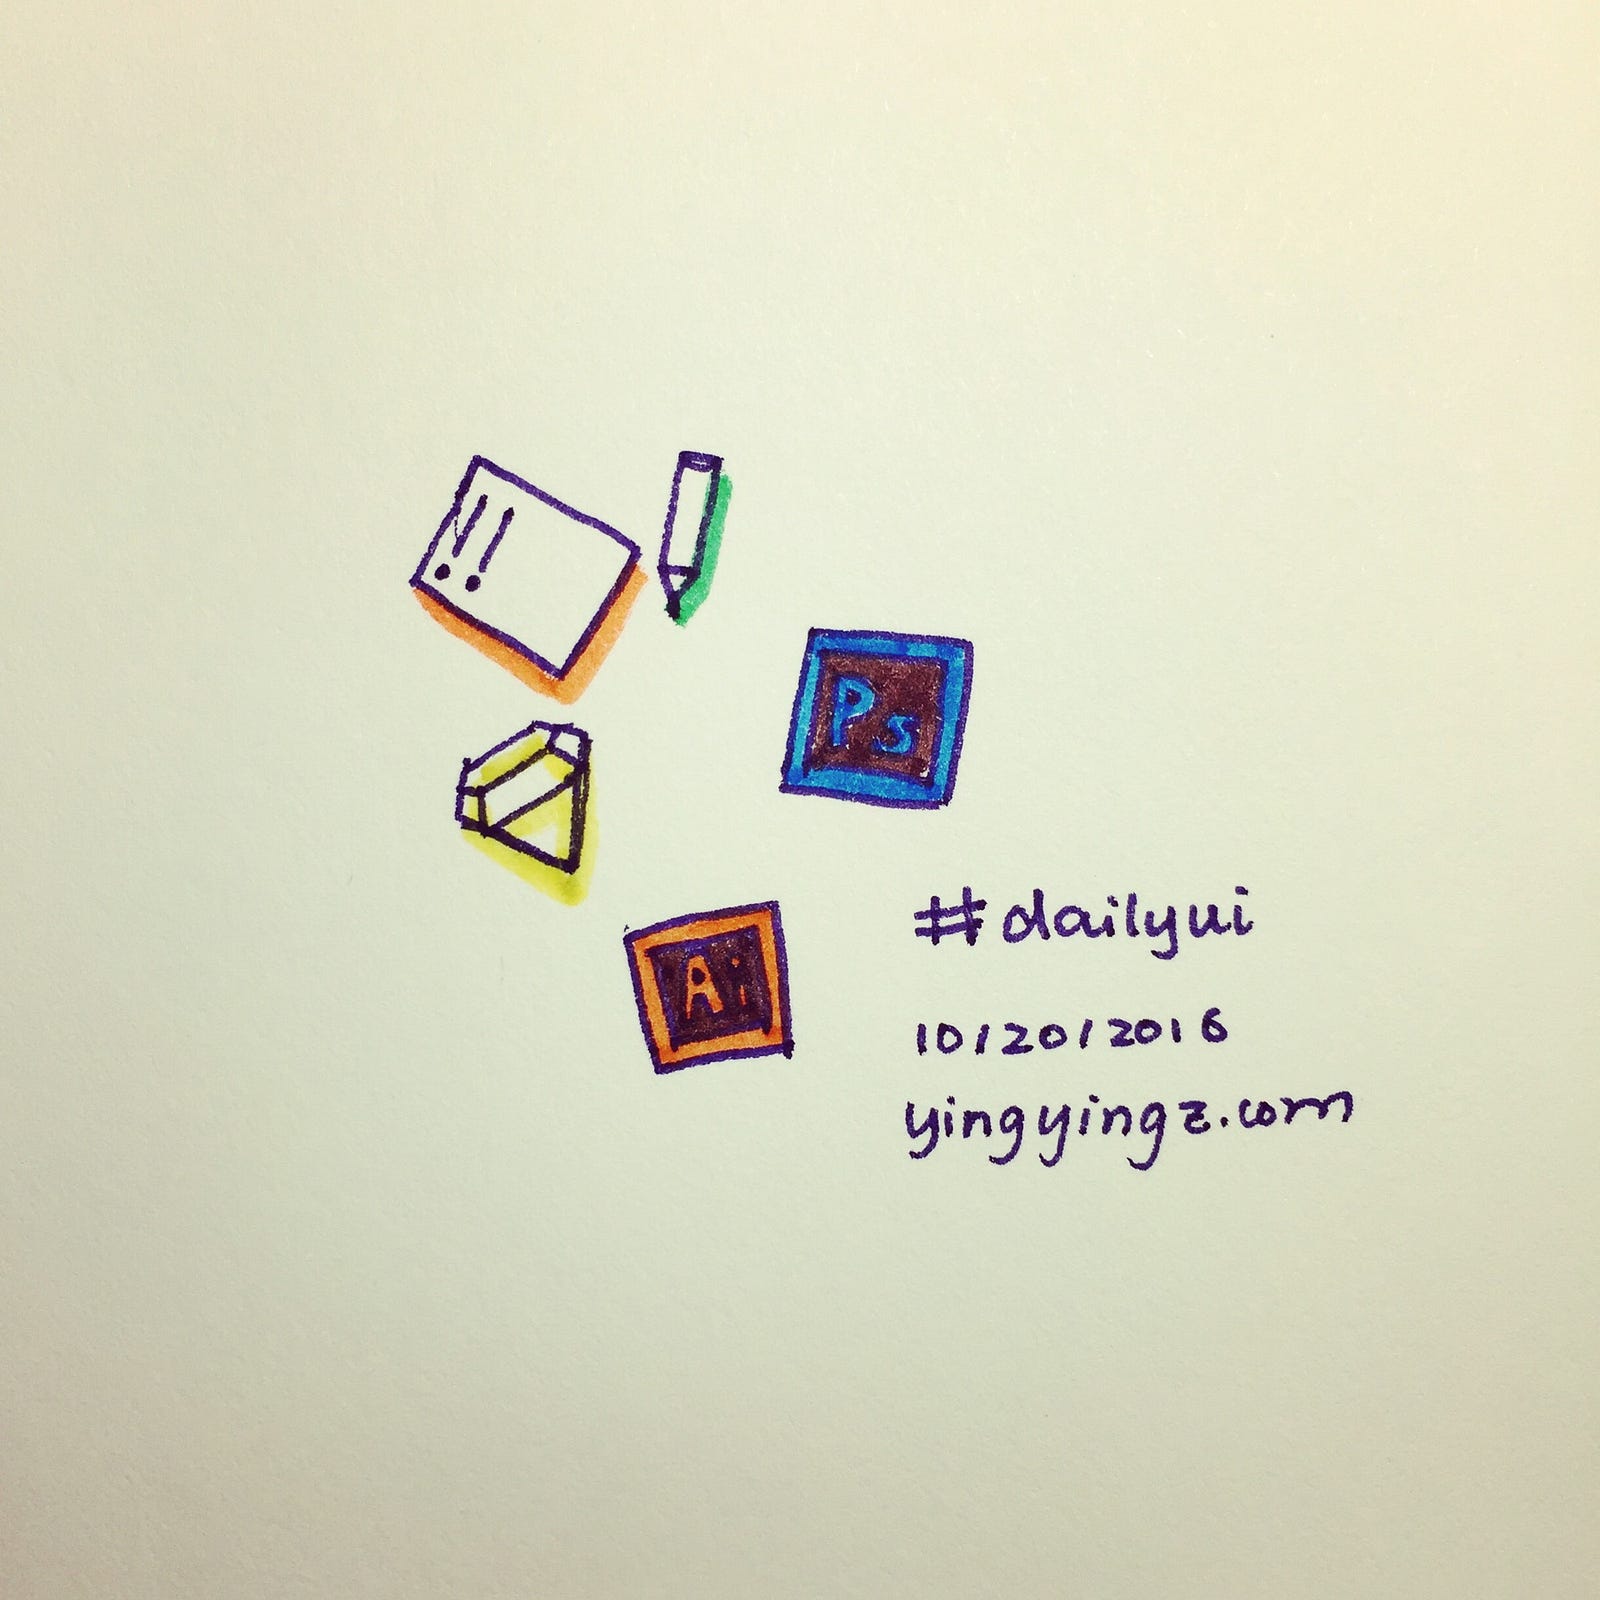 !!
Ps
Ai
#dailyui
10/20/2016
yingyingz.com